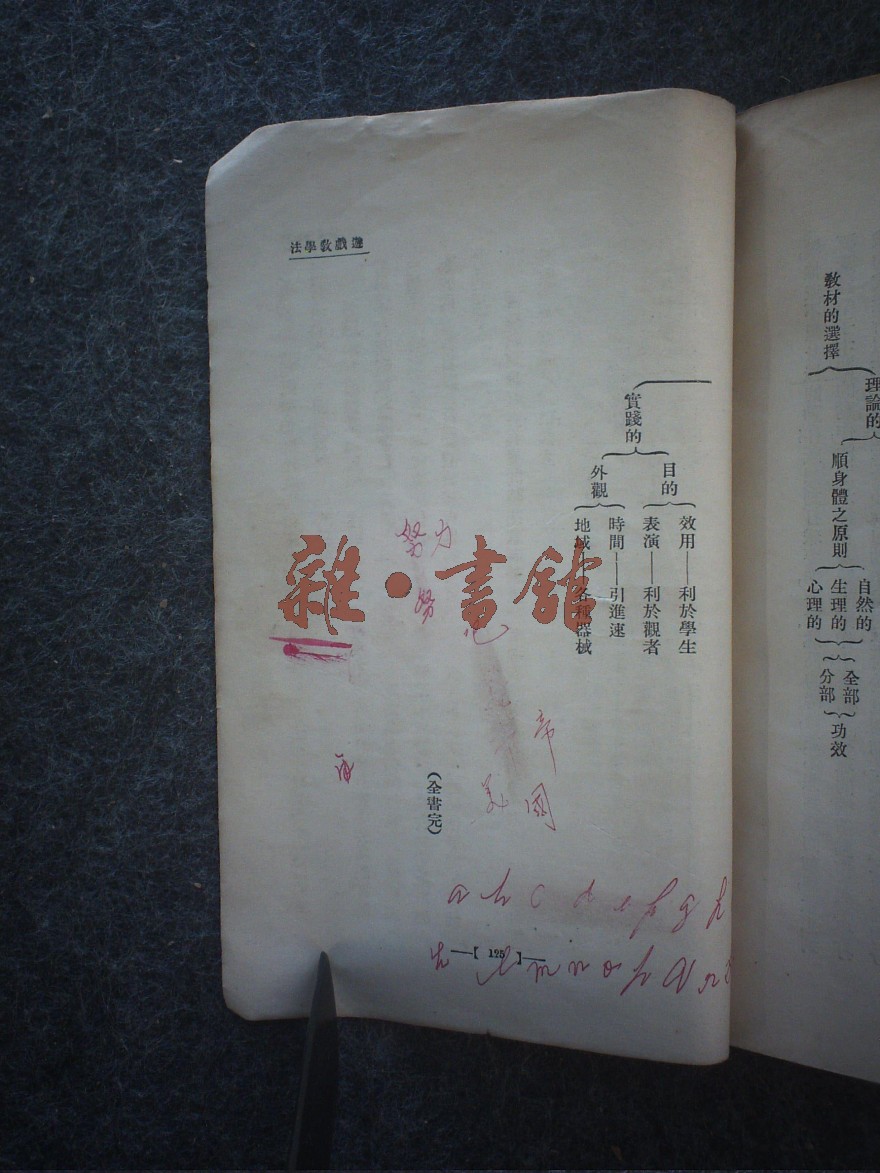 教材的選擇
理論的
順身體之原則
自然的
生理的
心理的
全部
分部
功效
遊戲教學法
實踐的
目的
外觀
效用——利於學生
表演——利於觀者
時間——引進速
地域——各種器械
(全書完)
—【 125 】—
雜·書館
努力
努
帝
美國
a b c d e f g h
l m n o p q r s